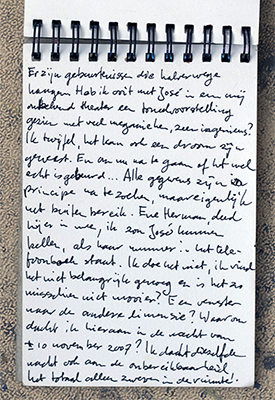 Er zijn gebeurtenissen die halverwege
hangen. Heb ik ooit met José in een mij
onbekend theater een toneelvoorstelling
gezien met veel mechanieken, zeer ingenieus?
Ik twijfel, het kan ook een droom zijn
geweest. En om nu na te gaan of het wel
echt is gebeurd... Alle gegevens zijn in
principe na te zoeken, maar eigenlijk
net buiten bereik. Ene Herman, deed
hij er in mee, ik zou José kunnen
bellen, als haar nummer in het tele-
foonboek staat. Ik doe het niet, ik vind
het niet belangrijk genoeg en is het zo
misschien niet mooier? Een venster
naar de andere dimensie? Waarom
dacht ik hieraan in de nacht van
± 10 november 2007? Ik dacht diezelfde
nacht ook aan de onbereikbaarheid
het totaal alleen zweven in de ruimte.